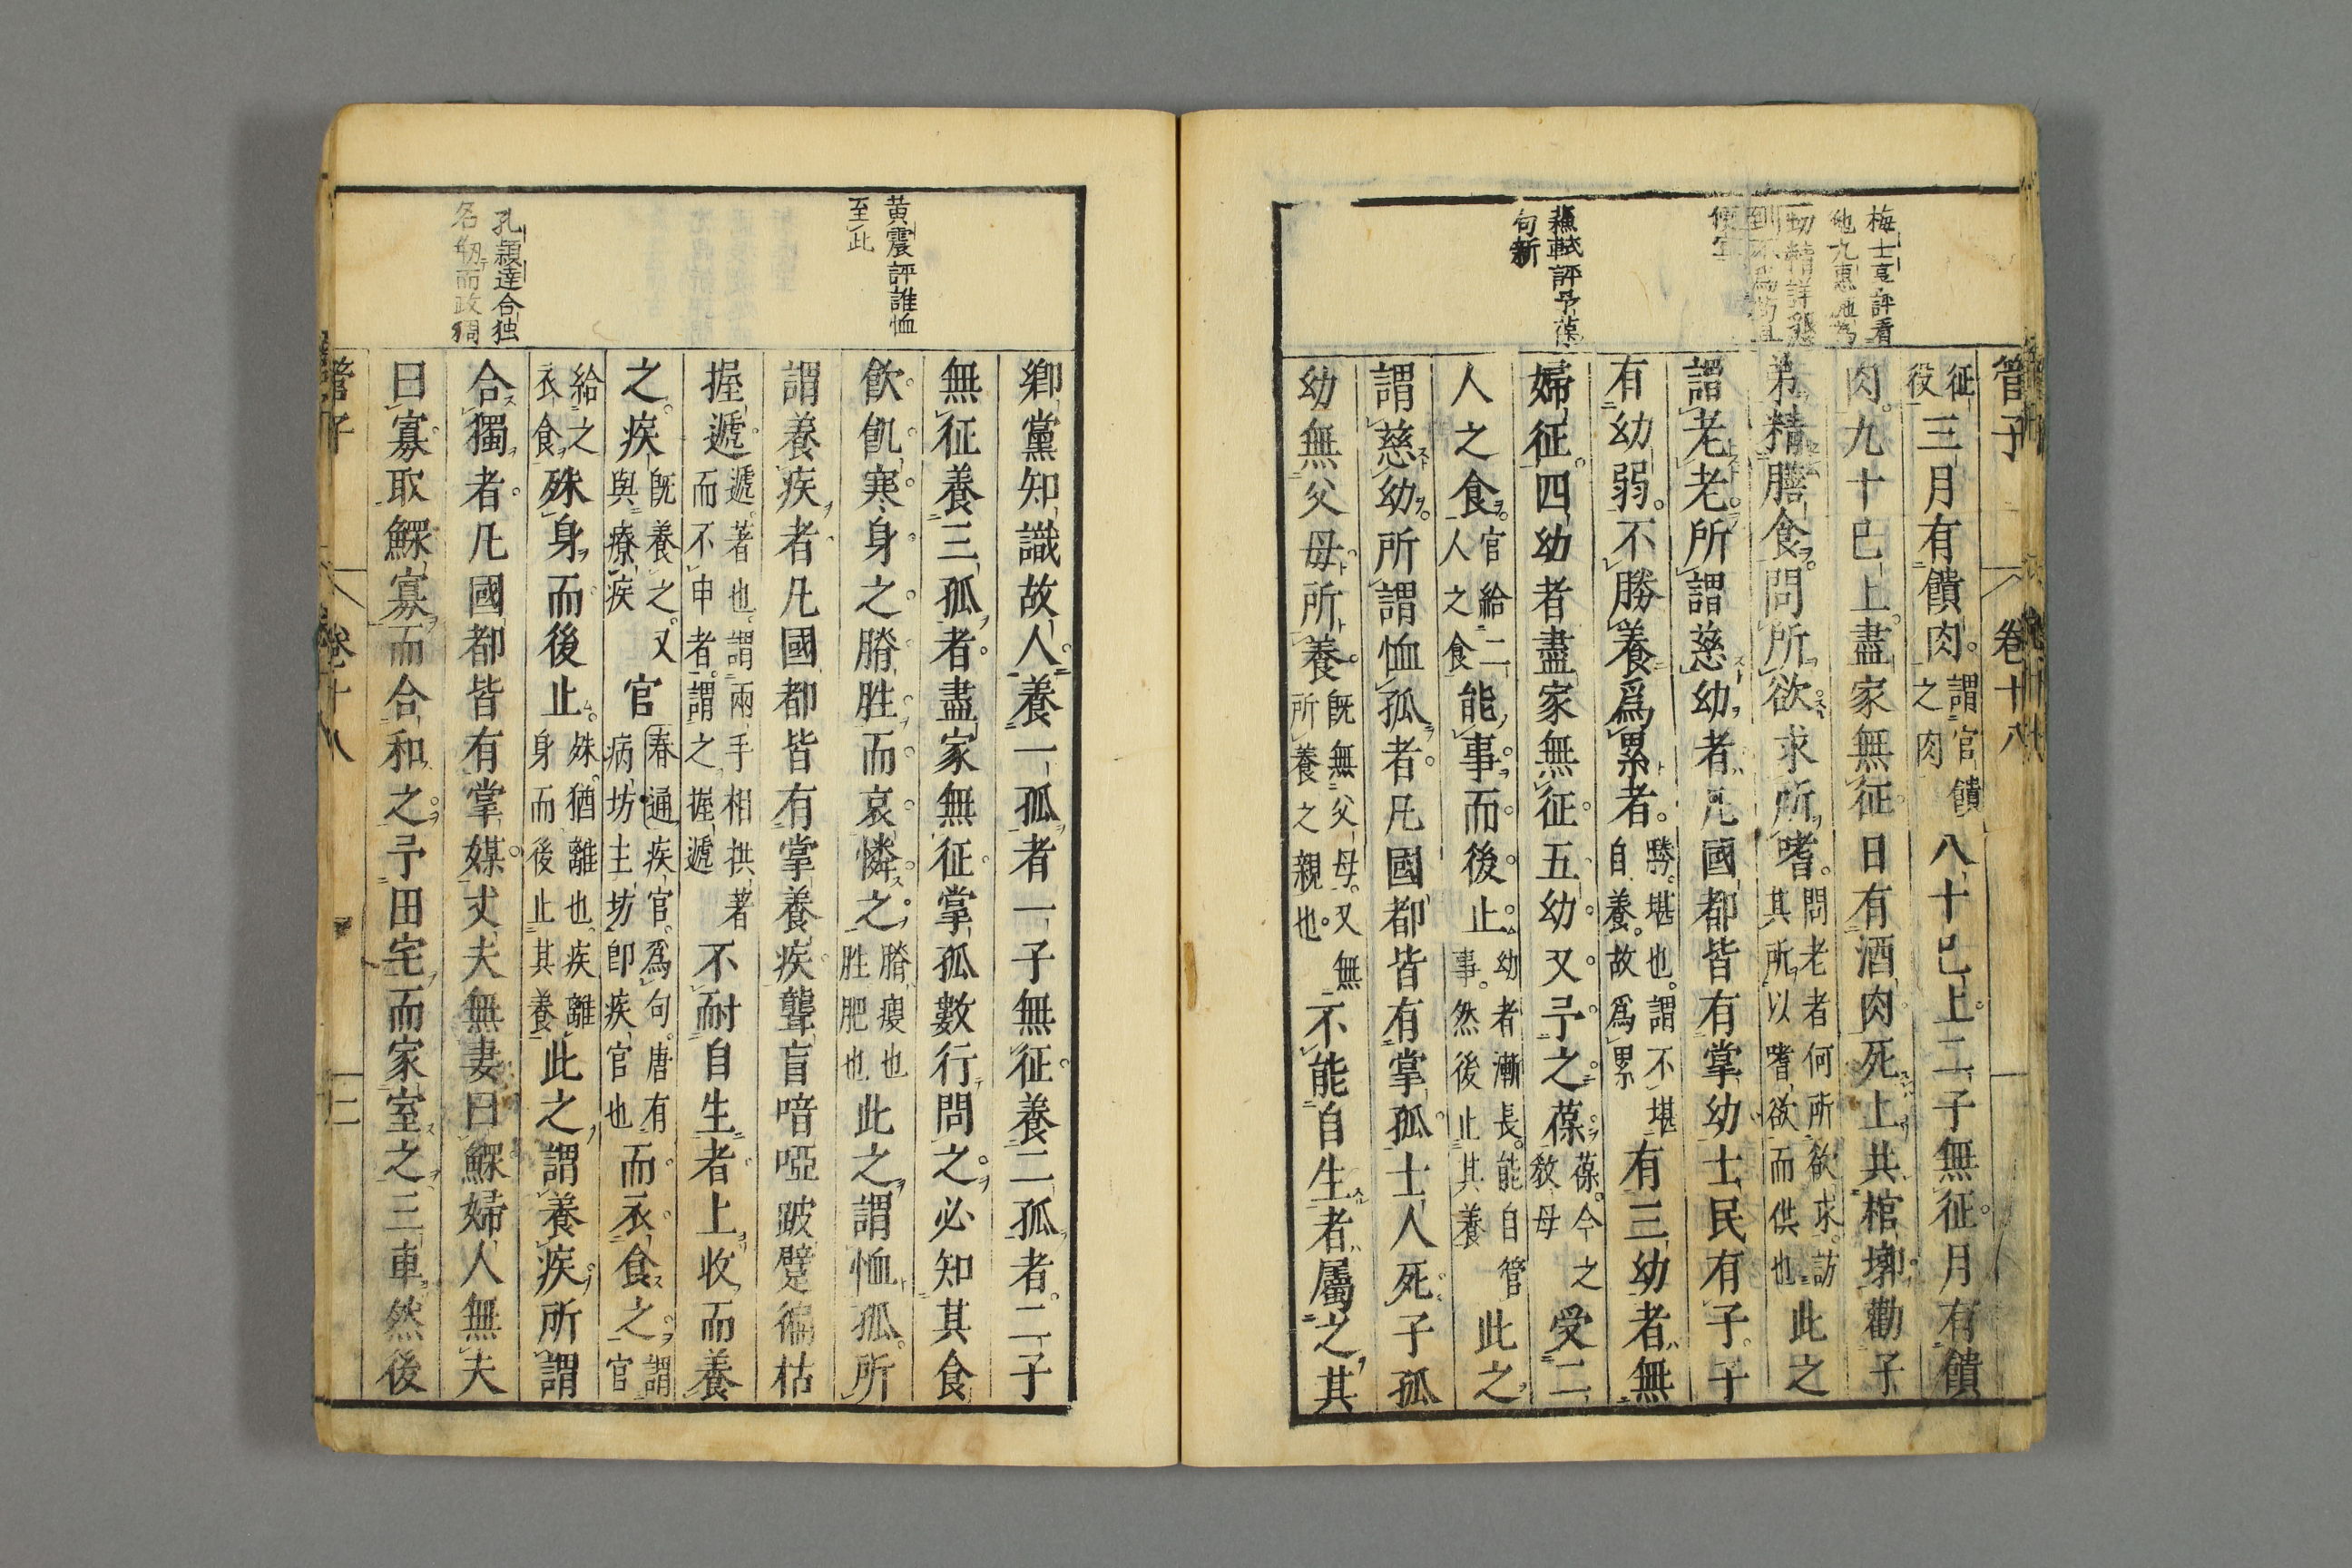 管子 卷十八
梅士享評看
他九惠施爲
切精詳懇
到不爲苟且
蘇軾評予葆
句新
征役三月有饋肉謂官饋之肉八十已上二子無征月有饋
肉九十已上盡家無征日有酒肉死上共棺槨勸子
弟精膳食問所欲求所嗜問老者何所欲求訪其所以嗜欲而供也此之
謂老老所謂慈幼者凡國都皆有掌幼士民有子子
有幼弱不勝養爲累者勝堪也謂不堪自養故爲累有三幼者無
婦征四幼者盡家無征五幼又予之葆葆今之教母受二
人之食官給二人之食能事而後止幼者漸長能自管事然後止其養此之
謂慈幼所謂恤孤者凡國都皆有掌孤士人死子孤
幼無父母所養旣無父母又無所養之親也不能自生者屬之其
黄震評誰恤
至此
孔穎達合独
名牣而政獨
鄉黨知識故人養一孤者一子無征養二孤者二子
無征養三孤者盡家無征掌孤數行問之必知其食
飲飢寒身之膌胜而哀憐之膌瘦也胜肥也此之謂恤孤所
謂養疾者凡國都皆有掌養疾聾盲喑啞跛躄偏枯
握遞遞著也謂兩手相拱著而不申者謂之握遞不耐自生者上收而養
之疾旣養之又與療疾官春通疾官爲句唐有病坊主坊卽疾官也而衣食之謂官
給之衣食殊身而後止殊猶離也疾離身而後止其養此之謂養疾所謂
合獨者凡國都皆有掌媒丈夫無妻曰鰥婦人無夫
曰寡取鰥寡而合和之予田宅而家室之三車然後
管子 卷十八 三